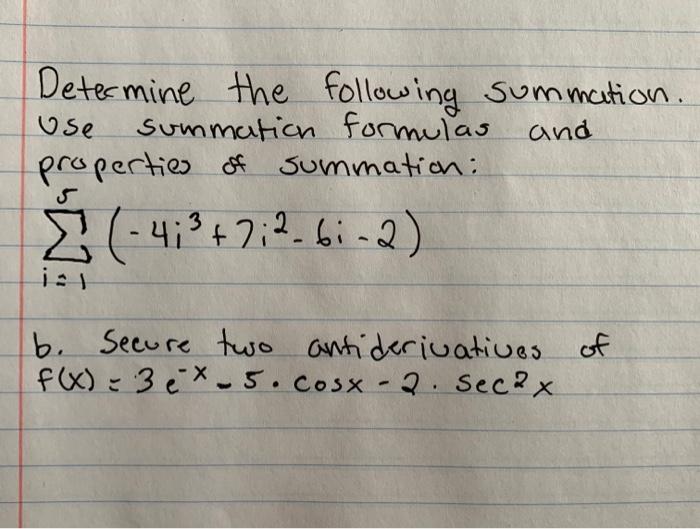 Determine the following summation.
Use summation formulas and
properties of summation:
5
Σ (-4i³ + 7i² - 6i - 2)
i=1
b. Secure two antiderivatives of
f(x) = 3e⁻ˣ - 5 · cosx - 2 · sec²x